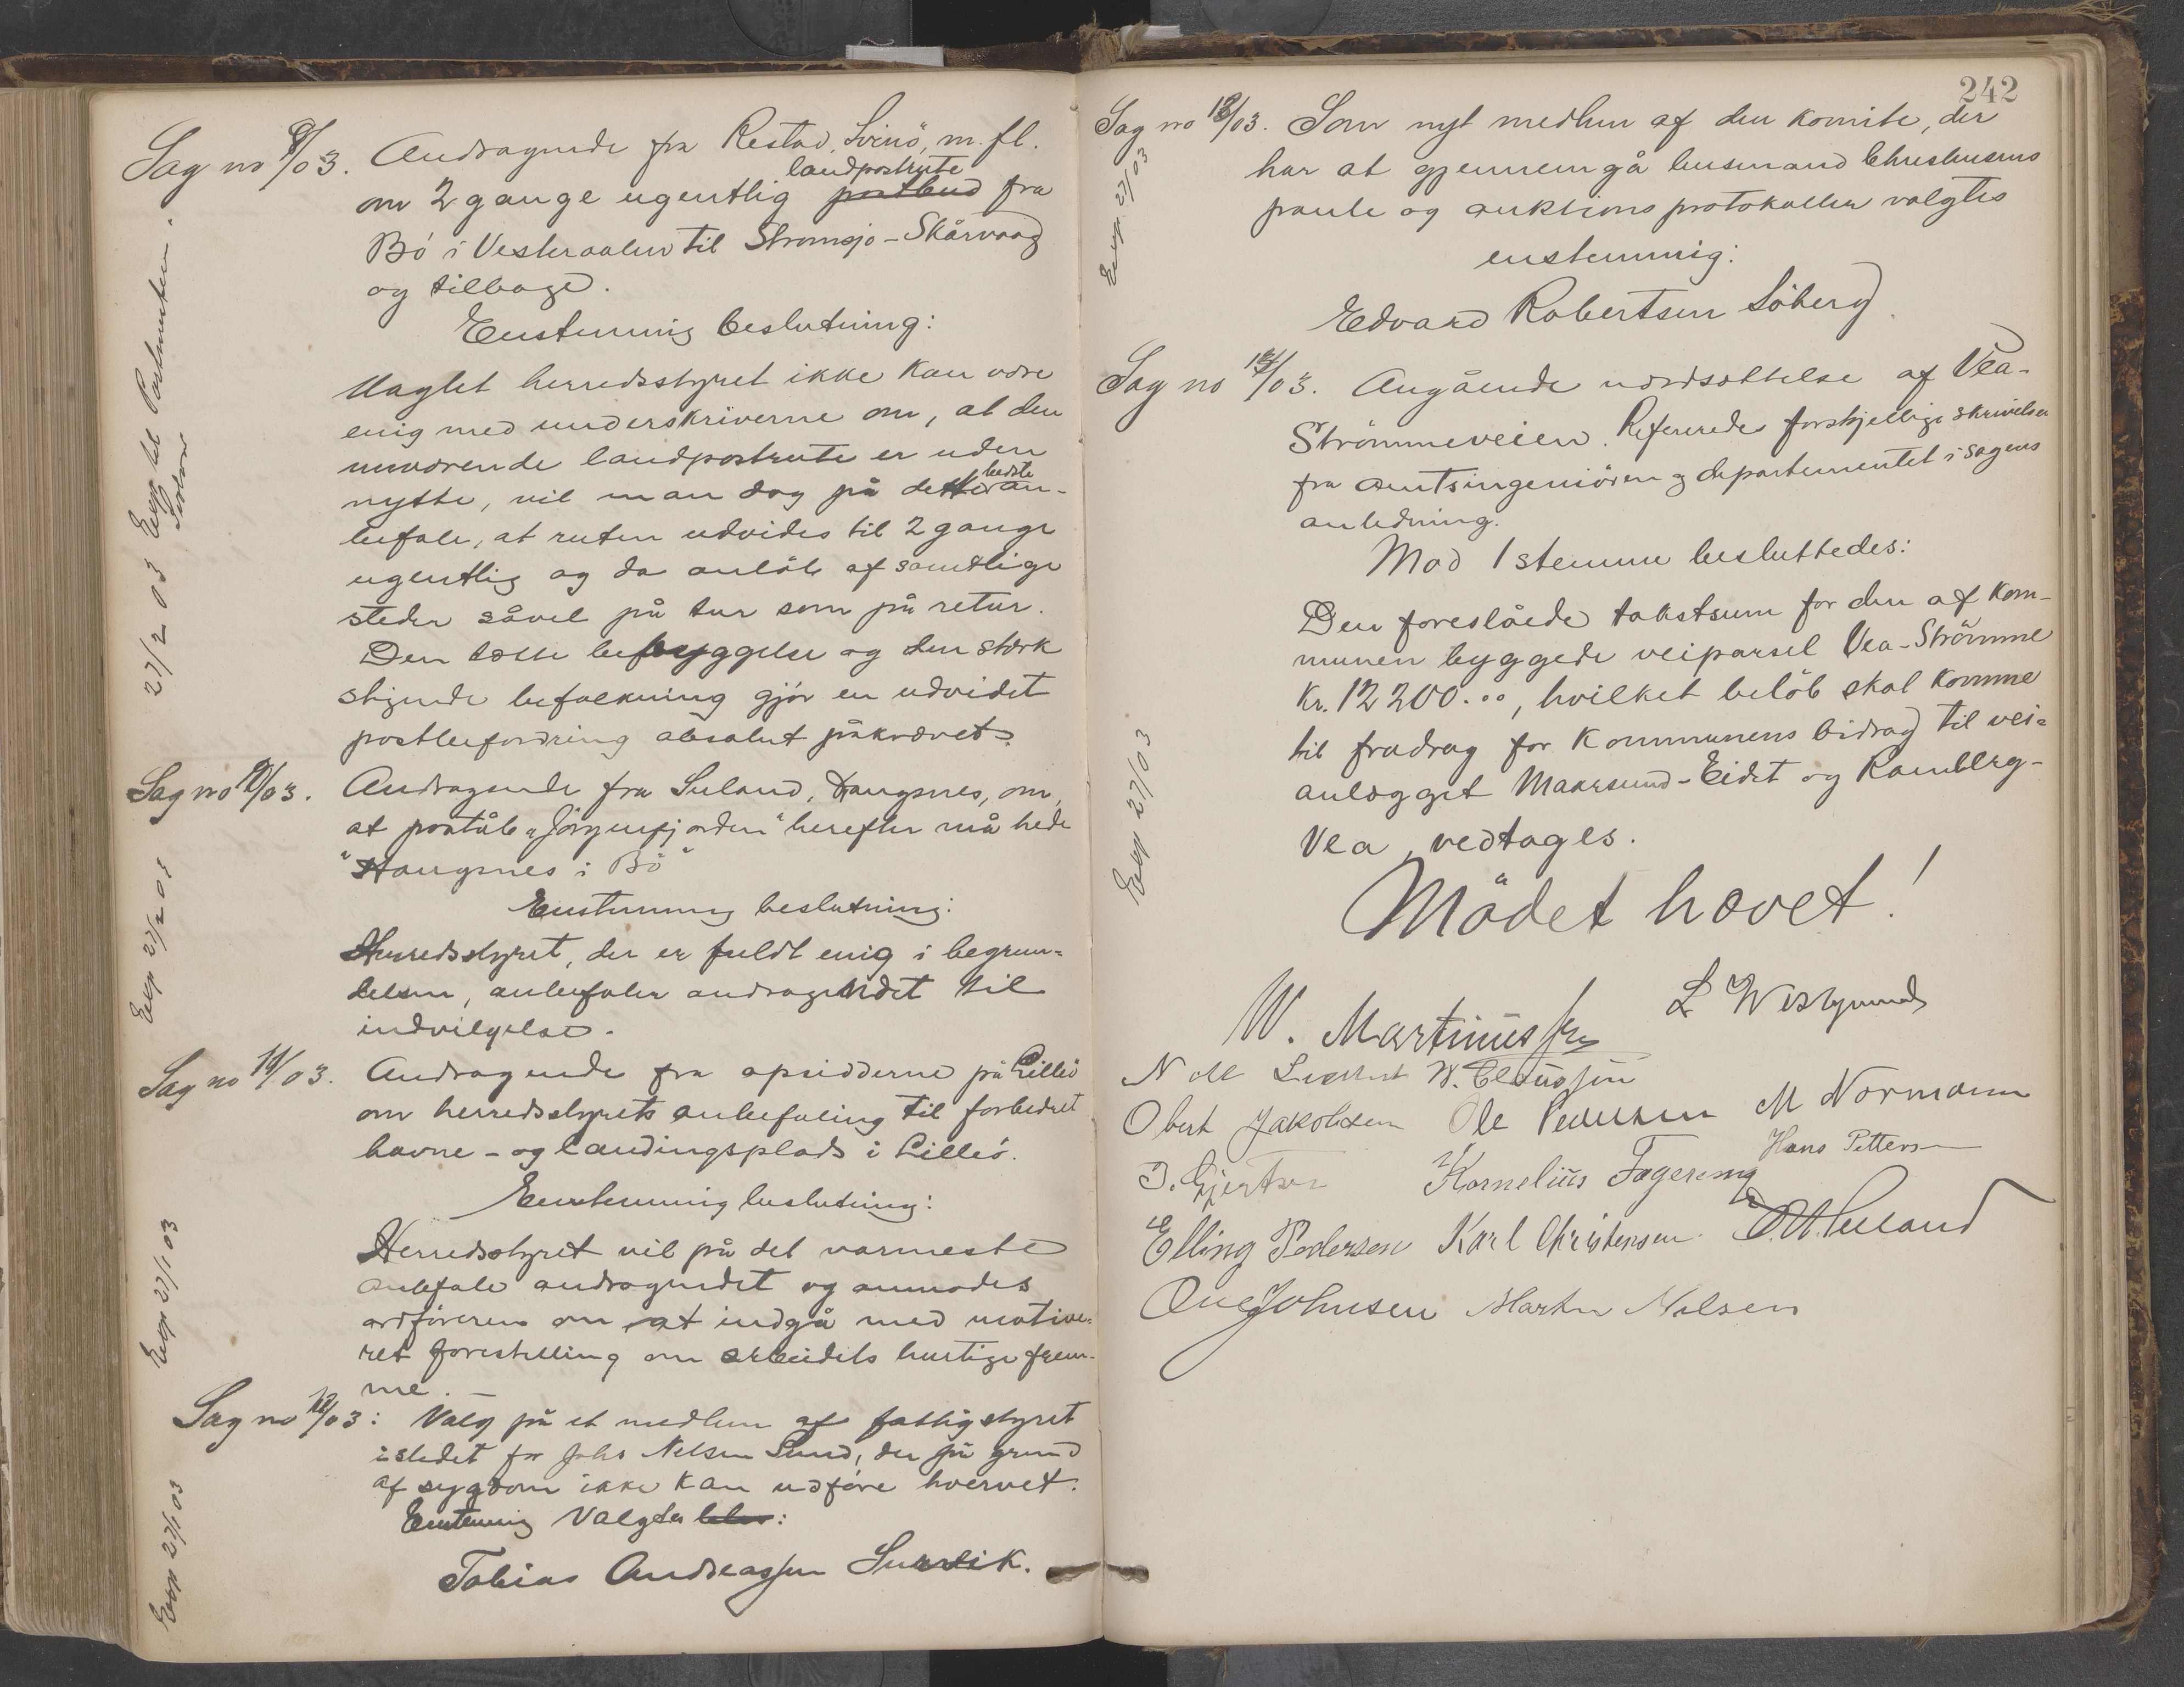 Sag no 9/03. Andragende fra Restad, Svinö, m. fl.
om 2 gange ugentlig landpostrute postbud fra
Bö i Vesteraalen til Strømsjo - Skårvaag
og tilbage.
Enstemmig beslutning:
Uagtet herredsstyret ikke kan være
enig med underskriverne om, at den
nuværende landpostrute er uden
nytte, vil man dog på det bedste an-
befale, at ruten udvides til 2 gange
ugentlig og da anlöb af samtlige
steder såvel på tur som på retur.
Den tætte bebyggelse og den stærk
stigende befolkning gjör en udvidet
postbefordring absolut påkrævet.
27/2 03 Exp til Postmesteren
Exp 27/2 03
Sag no 10/03. Andragende fra Suland, Haugsnes, om,
at poståb. "Jörgenfjorden" herefter må hede
"Haugsnes i Bö"
Enstemmig beslutning:
Herredsstyret, der er fuldt enig i begrun-
delsen, anbefaler andragendet til
indvilgelse.
Sag no 11/03. Andragende fra opsidderne på Lillö
om herredsstyrets anbefaling til forbedret
havne- og landingsplads i Lillö.
Enstemmig beslutning:
Herredsstyret vil på det varmeste
anbefale andragendet og anmodes
ordföreren om at indgå med motive-
ret forestilling om arbeidets hurtige frem-
me.
Exp 27/1 03
Sag no 12/03: Valg på et medlem af fattigstyret
istedet for Johs Nilsen Sund, der på grund
af sygdom ikke kan udföre hvervet.
Enstemmig valgtes:
Tobias Andreassen
Exp 27/1 03
242
Sag no 13/03. Som nyt medlem af den komite, der
har at gjennemgå lensmand Christensens
pante og auktionsprotokoller valgtes
enstemmig:
Edvard Robertsen Söberg.
Exp. 27/03
Sag no 14/03. Angående værdsættelse af Vea-
Strömmeveien. Refereredes forskjellige skrivelser
fra amtsingeniören og departementet i sagens
anledning.
Mod 1 stemme besluttedes:
Den foreslåede takstsum for den af kom-
munen byggede veiparsel Vea-Strömme
kr. 12200.00, hvilket belöb skal komme
til fradrag for kommunens bidrag til vei-
anlægget Maarsund-Eidet og Ramberg-
Vea, vedtages.
Exp 27/03
Mödet hævet!
W. Martinussen L
N M W. Claussen
Obert Jakobsen Ole Pedersen M Normann
Kornelius Hans Petters
Elling Pedersen Karl Christensen.
Ove Johnsen Martin Nilsen